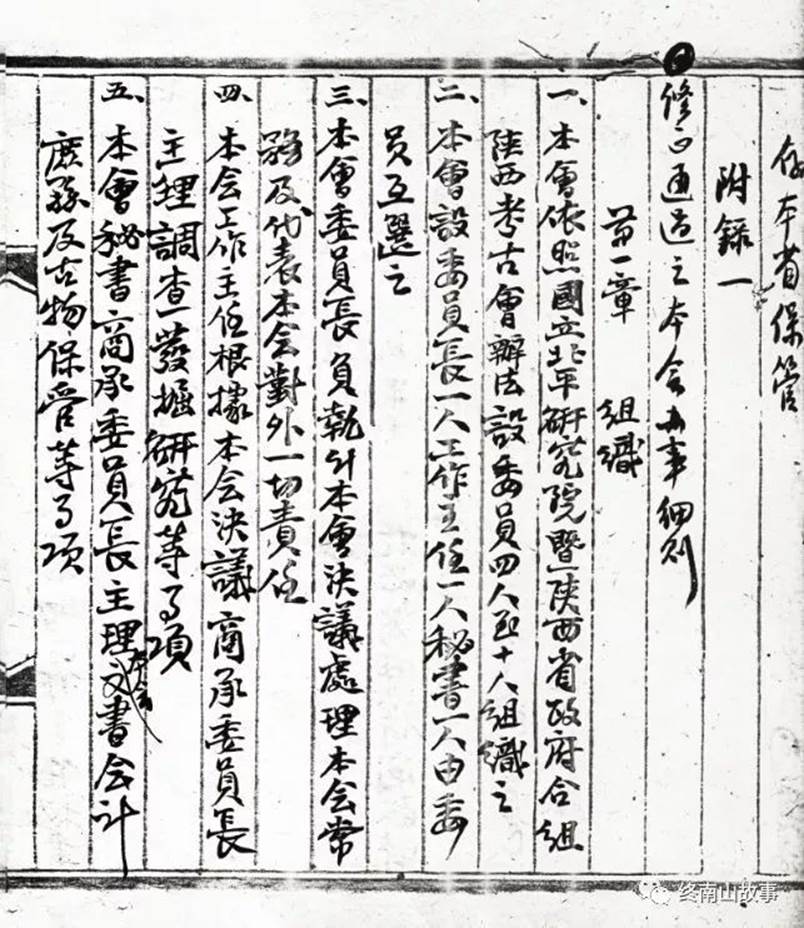 本省保管
附錄一
修正通過之本会办事細則
第一章　組織
一、本會依照國立北平研究院暨陝西省政府合組
陝西考古會辦法設委員四人至十人組織之
二、本會設委員長一人工作主任一人秘書一人由委
員互選之
三、本會委員長負執行本會決議處理本会常
務及代表本会對外一切責任
四、本会工作主任根據本会決議商承委員長
主理調查發掘研究等事項
五、本會秘書商承委員長主理本会文書会計
庶務及古物保管等事項
终南山故事